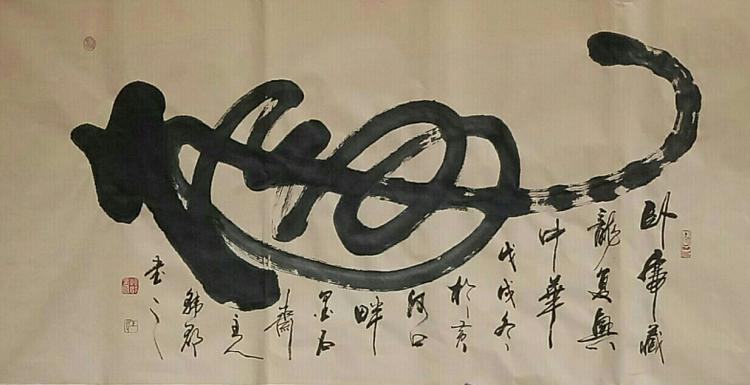 卧虎藏
龍复興
中華
戊戌冬
於黄
河口
畔
墨石
齋
主人
韩郡
書之